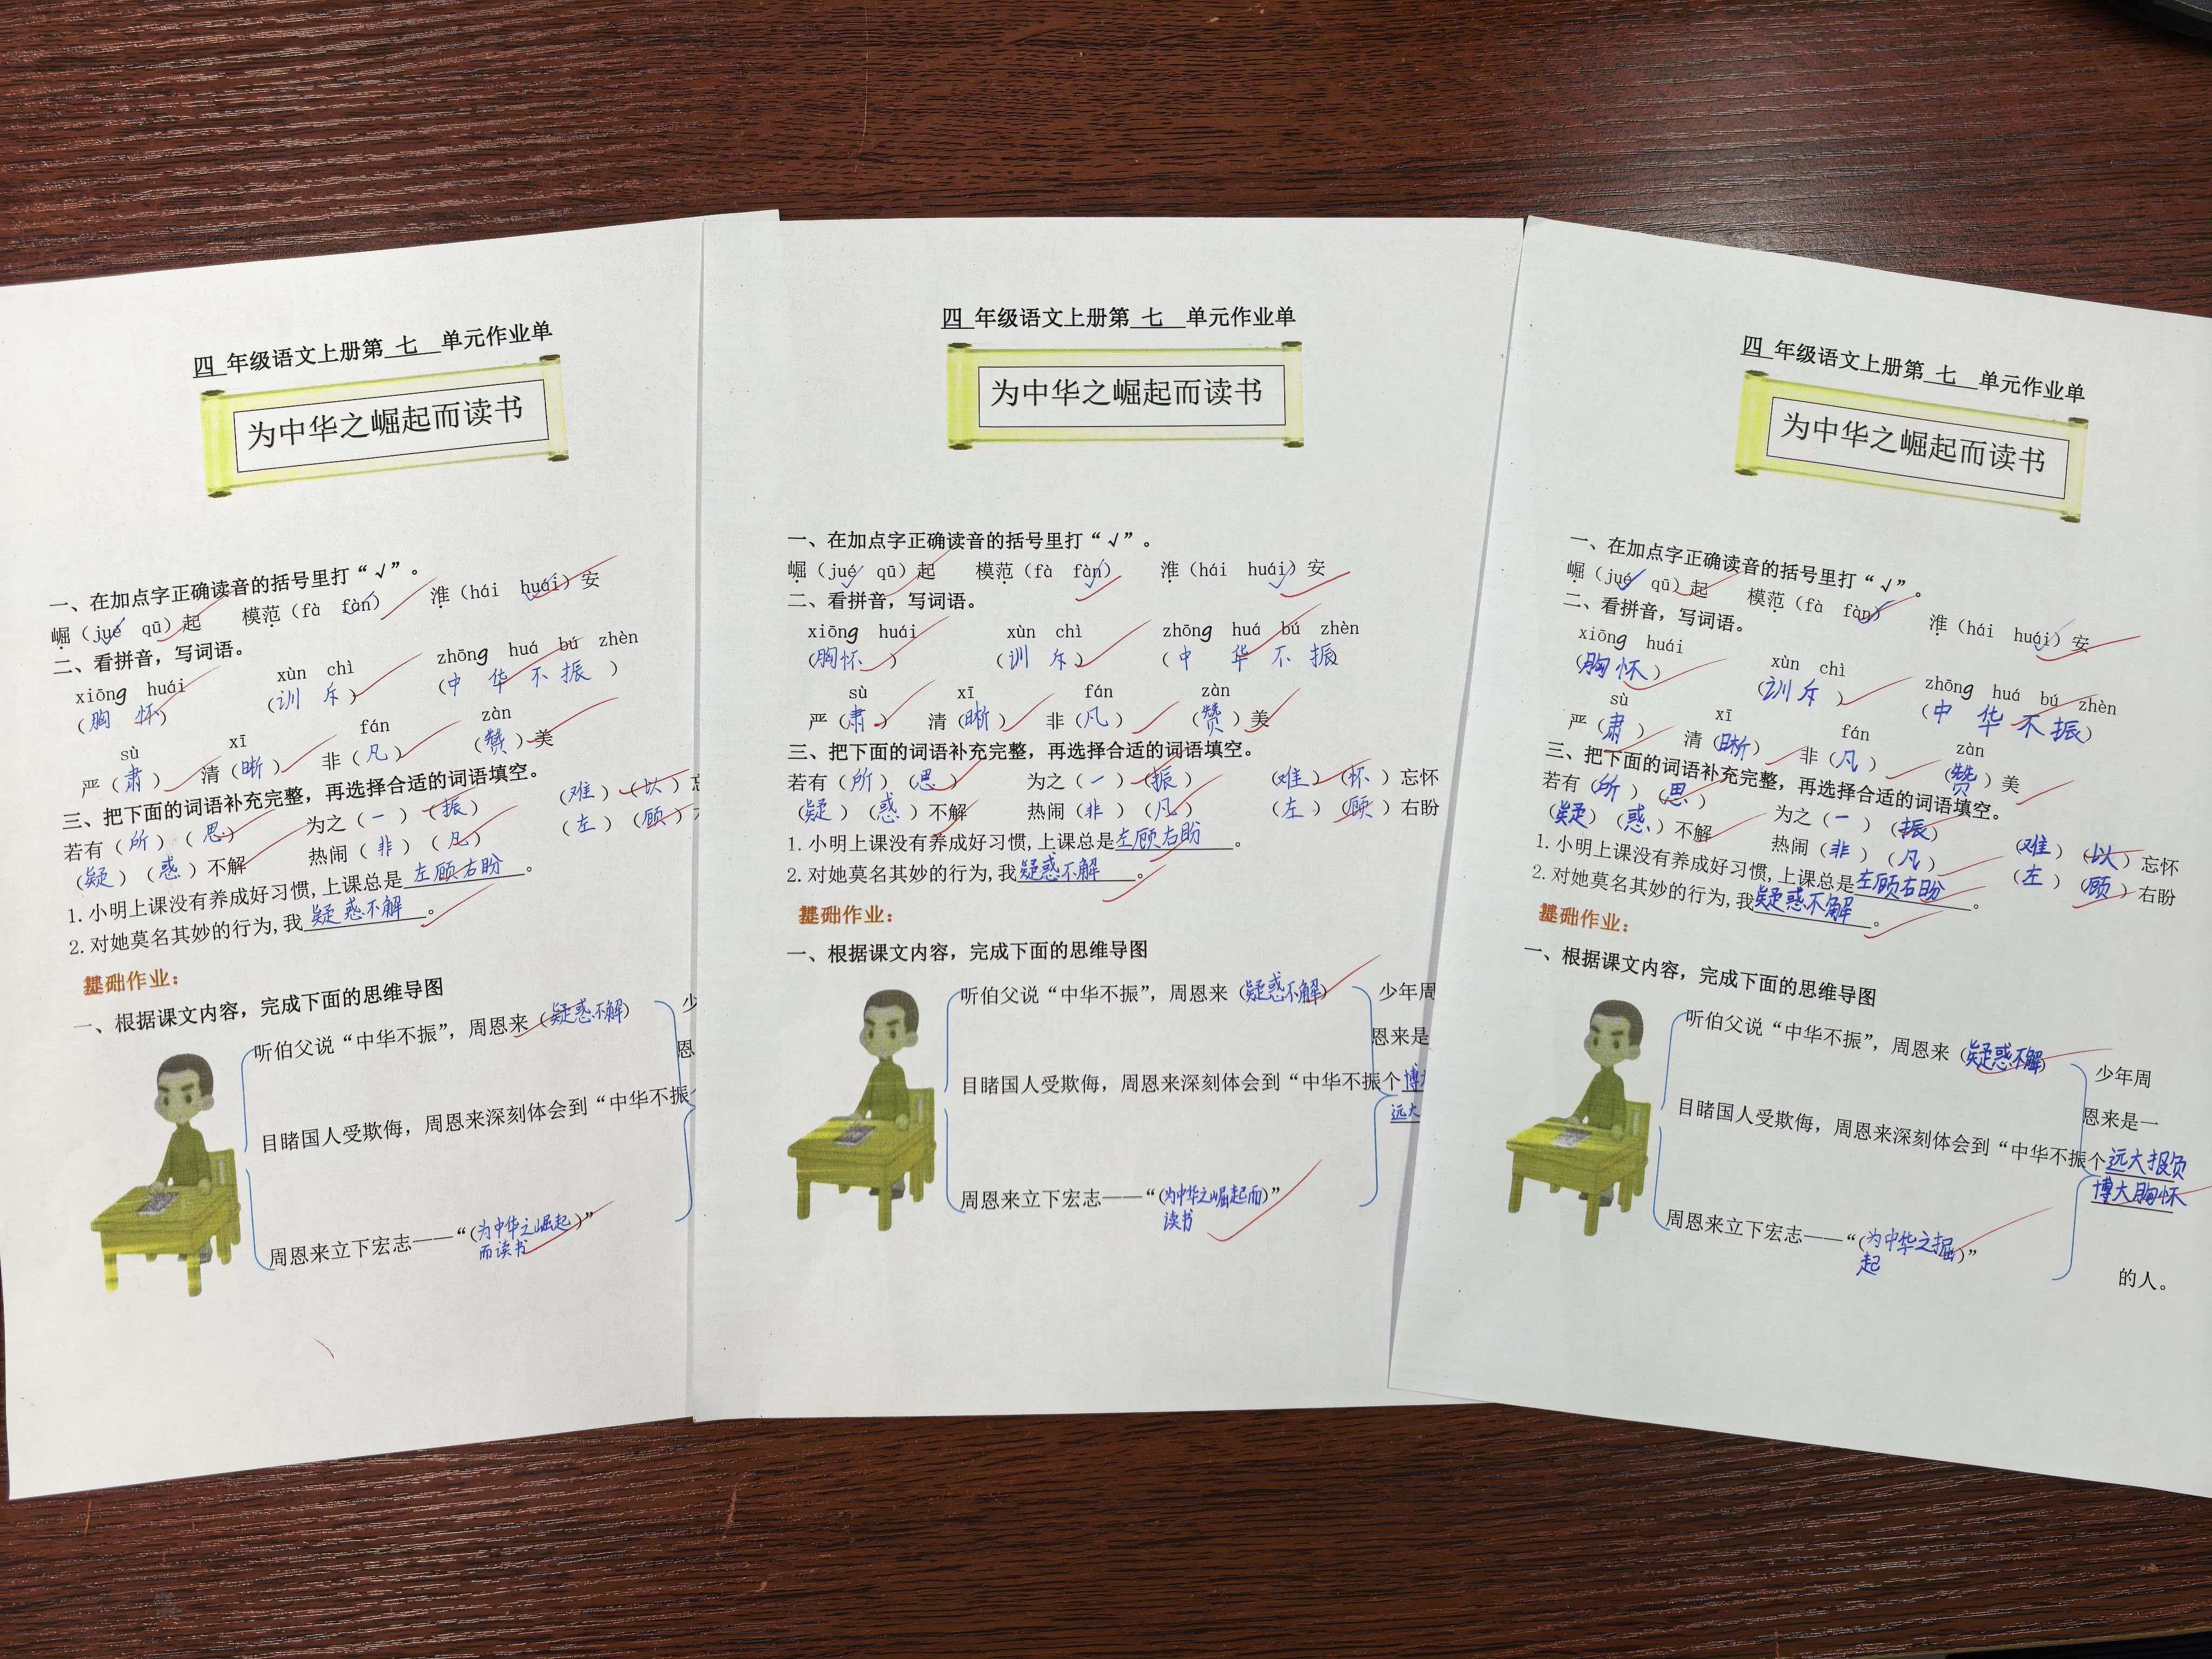 四 年级语文上册第 七 单元作业单
为中华之崛起而读书
一、在加点字正确读音的括号里打“√”。
崛（jué qū）起 模范（fà fàn） 淮（hái huái）安
二、看拼音，写词语。
xiōng huái xùn chì zhōng huá bú zhèn
（胸怀） （训斥） （中华不振）
sù xī fán zàn
严（肃） 清（晰） 非（凡） （赞）美
三、把下面的词语补充完整，再选择合适的词语填空。
若有（所）（思） 为之（一）（振） （难）（以）忘
（疑）（惑）不解 热闹（非）（凡） （左）（顾）
1.小明上课没有养成好习惯,上课总是左顾右盼。
2.对她莫名其妙的行为,我疑惑不解。
基础作业：
一、根据课文内容，完成下面的思维导图
听伯父说“中华不振”，周恩来（疑惑不解） 少
恩
目睹国人受欺侮，周恩来深刻体会到“中华不振
周恩来立下宏志——“（为中华之崛起
而读书）”
四 年级语文上册第 七 单元作业单
为中华之崛起而读书
一、在加点字正确读音的括号里打“√”。
崛（jué qū）起 模范（fà fàn） 淮（hái huái）安
二、看拼音，写词语。
xiōng huái xùn chì zhōng huá bú zhèn
（胸怀） （训斥） （中华不振）
sù xī fán zàn
严（肃） 清（晰） 非（凡） （赞）美
三、把下面的词语补充完整，再选择合适的词语填空。
若有（所）（思） 为之（一）（振） （难）（怀）忘怀
（疑）（惑）不解 热闹（非）（凡） （左）（顾）右盼
1.小明上课没有养成好习惯,上课总是左顾右盼。
2.对她莫名其妙的行为,我疑惑不解。
基础作业：
一、根据课文内容，完成下面的思维导图
听伯父说“中华不振”，周恩来（疑惑不解） 少年周
恩来是
目睹国人受欺侮，周恩来深刻体会到“中华不振个博
远大
周恩来立下宏志——“（为中华之崛起而）”
读书
四 年级语文上册第 七 单元作业单
为中华之崛起而读书
一、在加点字正确读音的括号里打“√”。
崛（jué qū）起 模范（fà fàn） 淮（hái huái）安
二、看拼音，写词语。
xiōng huái xùn chì zhōng huá bú zhèn
（胸怀） （训斥） （中华不振）
sù xī fán zàn
严（肃） 清（晰） 非（凡） （赞）美
三、把下面的词语补充完整，再选择合适的词语填空。
若有（所）（思） 为之（一）（振） （难）（以）忘怀
（疑）（惑）不解 热闹（非）（凡） （左）（顾）右盼
1.小明上课没有养成好习惯,上课总是左顾右盼。
2.对她莫名其妙的行为,我疑惑不解。
基础作业：
一、根据课文内容，完成下面的思维导图
听伯父说“中华不振”，周恩来（疑惑不解） 少年周
恩来是一
目睹国人受欺侮，周恩来深刻体会到“中华不振个远大报负
博大胸怀
周恩来立下宏志——“（为中华之掘）”
起
的人。